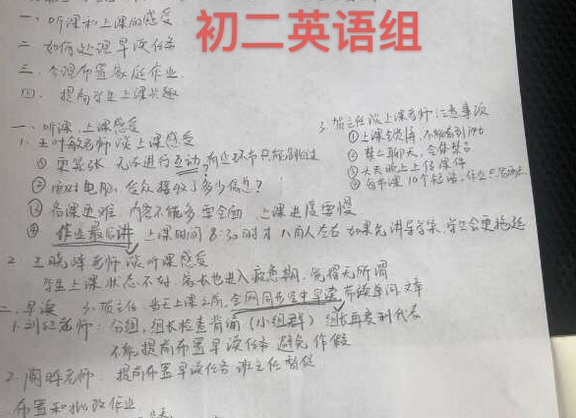 初二英语组
一、听课和上课的感受
二、如何处理早读任务
三、合理布置家庭作业
四、提高学生上课兴趣
一、听课、上课感受
1. 王叶敏老师谈上课感受
① 更紧张 无法进行互动,有些环节只能跳过
② 面对电脑,学生接收了多少信息?
③ 备课更难 内容不能多要全面 上课进度要慢
④ 作业最后讲 上课时间8:30时才八两人左右 如果先讲导学案,学生会更拖延
3. 主任谈上课老师注意事项
① 上课
② 禁止聊天,全体禁言
③ 上传课件
④ 每节课10个短语,作业
2. 王晓峰老师谈听课感受
学生上课状态不好,家长也进入疲惫期,觉得无所谓
二、早读
3. 主任 当天上课之前,全网同步空中早读,带读单词文章
1. 刘红老师:分组,组长检查背诵(小组群)组长再发到代表
不能提前布置早读任务 避免作假
2. 陶晖老师:提前布置早读任务 班主任督促
布置和批改作业